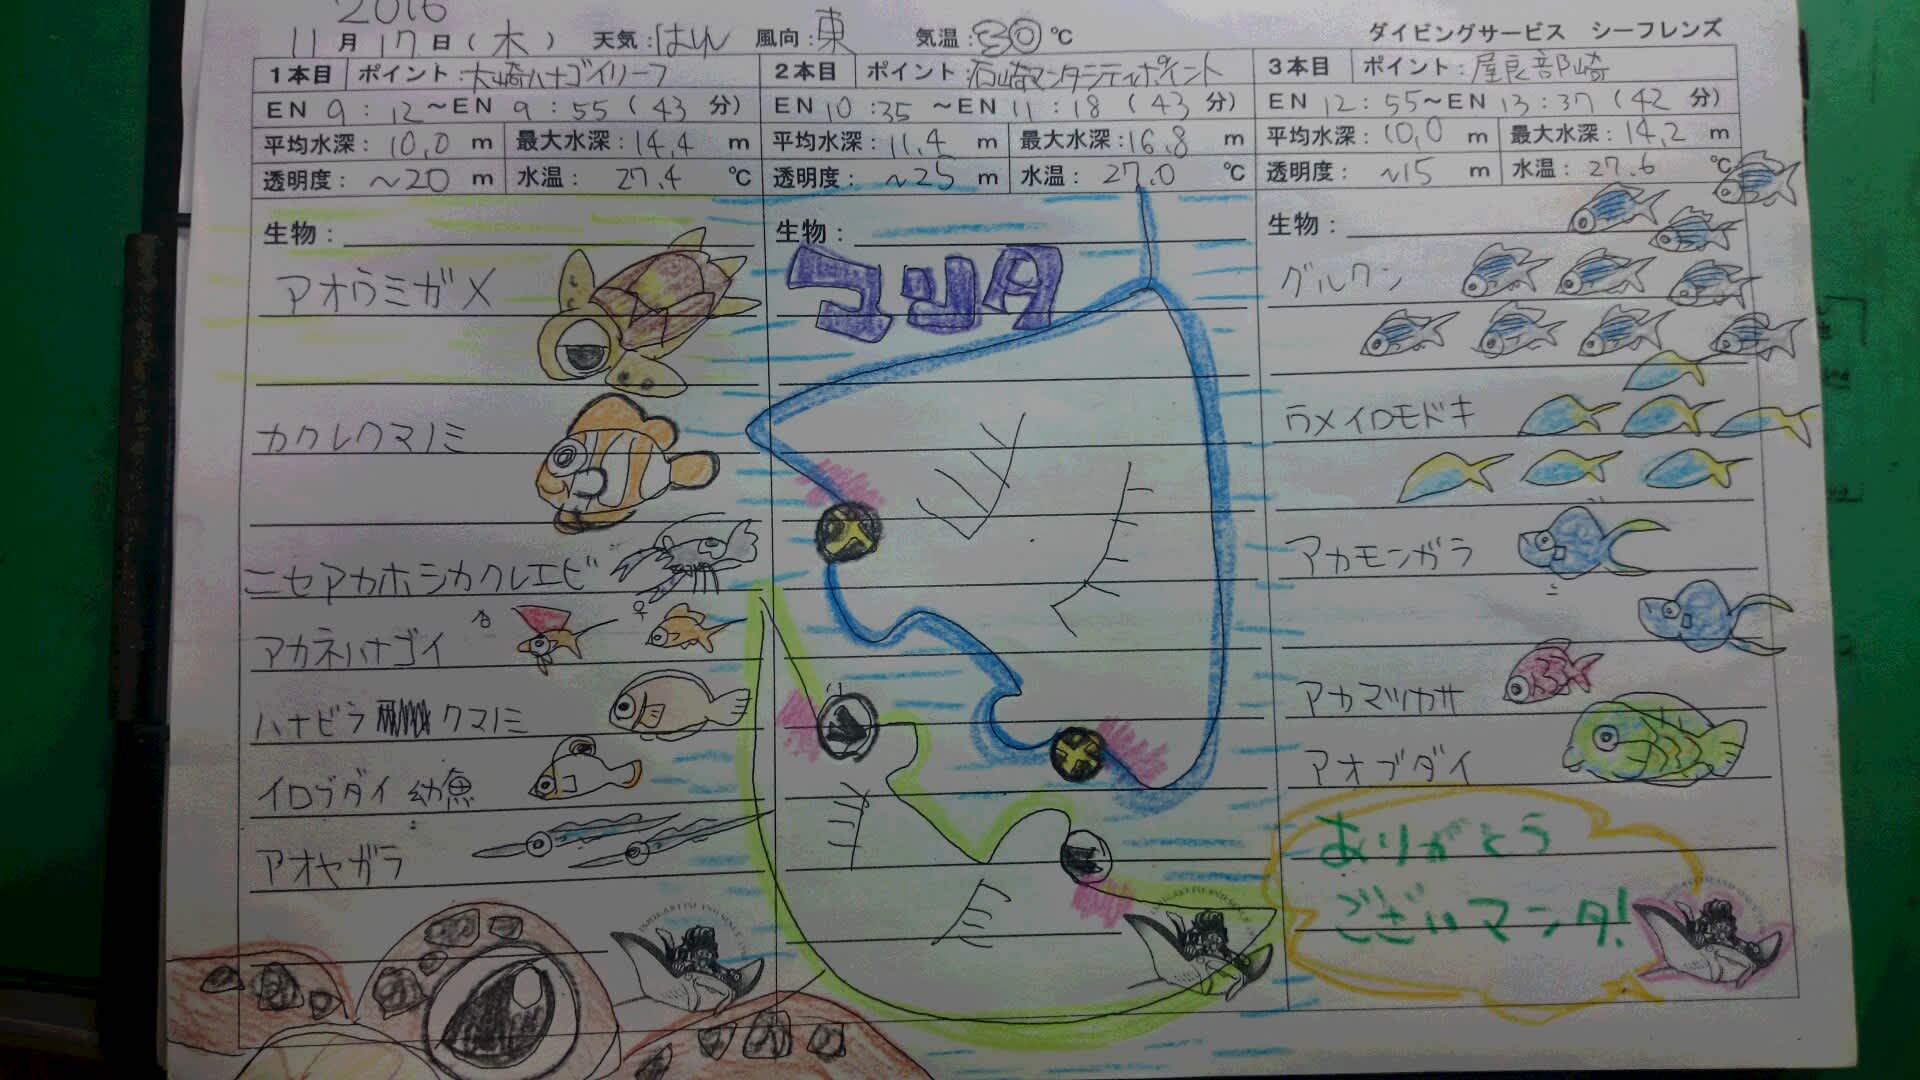 2016
11月17日(木) 天気:はれ 風向:東 気温:30℃ ダイビングサービス シーフレンズ
1本目 ポイント:大崎ハナゴイリーフ
EN 9:12~EN 9:55(43分)
平均水深:10.0m 最大水深:14.4m
透明度:~20m 水温:27.4℃
生物:
アオウミガメ
カクレクマノミ
ニセアカホシカクレエビ
アカネハナゴイ
♂ ♀
ハナビラクマノミ
イロブダイ 幼魚
アオヤガラ
2本目 ポイント:石崎マンタシティポイント
EN 10:35~EN 11:18(43分)
平均水深:11.4m 最大水深:16.8m
透明度:~25m 水温:27.0℃
生物:
マンタ
3本目 ポイント:屋良部崎
EN 12:55~EN 13:37(42分)
平均水深:10.0m 最大水深:14.2m
透明度:~15m 水温:27.6℃
生物:
グルクン
ウメイロモドキ
アカモンガラ
アカマツカサ
アオブダイ
ありがとう
ございマンタ!